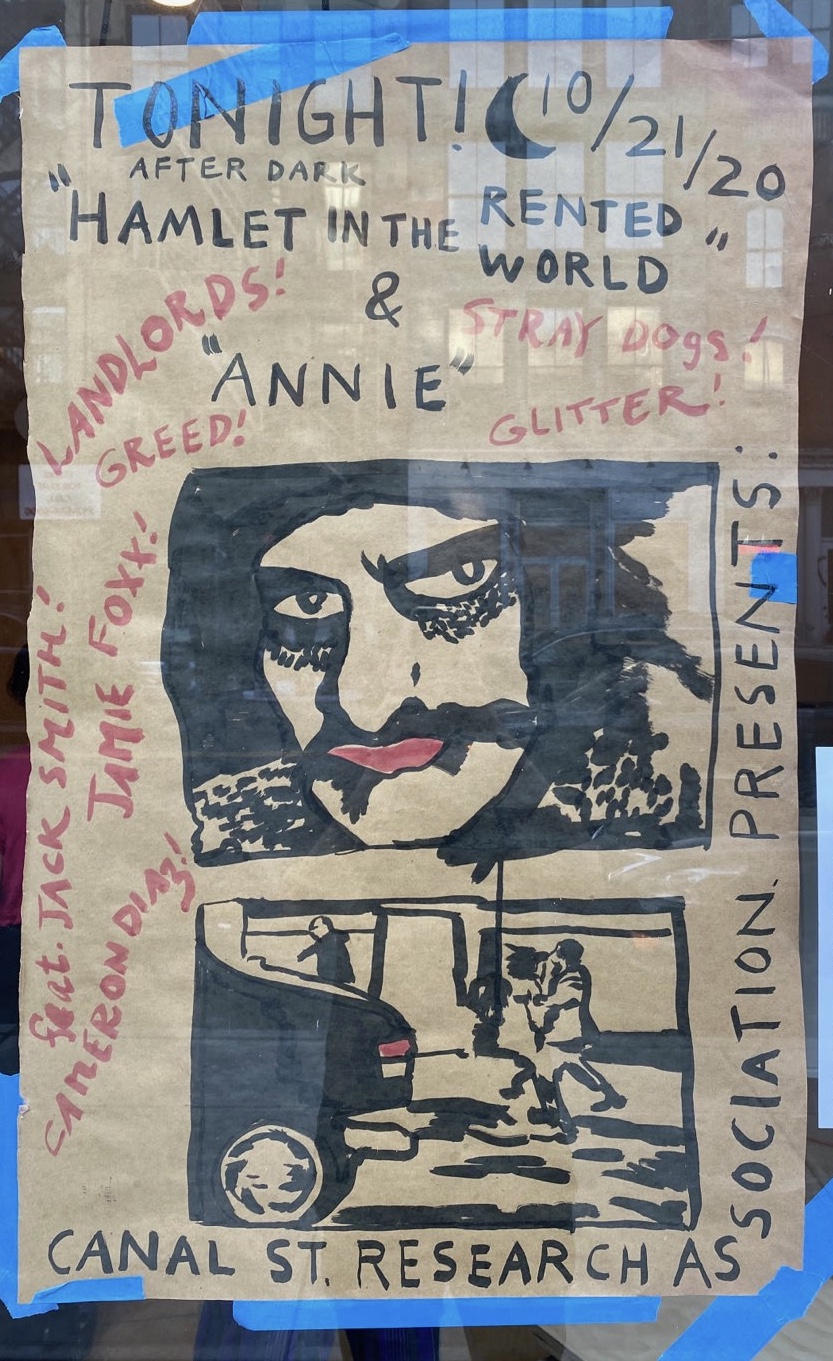 TONIGHT! 10/21/20
AFTER DARK
"HAMLET IN THE RENTED WORLD"
&
"ANNIE"
LANDLORDS!
GREED!
STRAY DOgs!
GLITTER!
feat. JACK SMITH!
JAMIE FOXX!
CAMERON DIAZ!
CANAL ST. RESEARCH ASSOCIATION. PRESENTS: